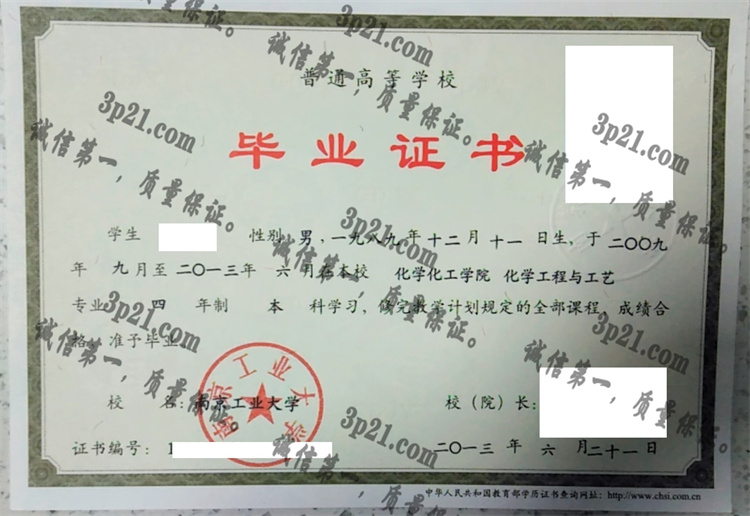 普通高等学校
毕业证书
学生 性别 男，一九八九年十二月十一日生，于二〇〇九
年 九月至二〇一三年 六月在本校 化学化工学院 化学工程与工艺
专业 四 年制 本 科学习，修完教学计划规定的全部课程，成绩合
格，准予毕业。
校 名：南京工业大学 校（院）长：
证书编号：1 二〇一三 年 六 月二十一日
中华人民共和国教育部学历证书查询网址：http://www.chsi.com.cn
南京工业大学
3p21.com
诚信第一，质量保证。
3p21.com
诚信第一，质量保证。
3p21.com
诚信第一，质量保证。
3p21.com
诚信第一，质量保证。
3p21.com
诚信第一，质量保证。
3p21.com
诚信第一，质量保证。
3p21.com
诚信第一，质量保证。
3p21.com
诚信第一，质量保证。